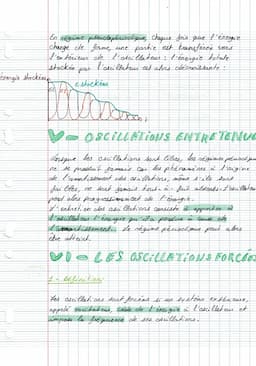 En régime pseudopériodique, chaque fois que l'énergie
change de forme, une partie est transférée vers
l'extérieur de l'oscillateur : l'énergie totale
stockée par l'oscillateur est alors décroissante :
énergie stockée
E stockée
t
V - OSCILLATIONS ENTRETENUE
Lorsque les oscillations sont libres, les régimes périodiques
ne se produit jamais car les phénomènes à l'origine
de l'amortissement des oscillations, même s'ils sont
faibles, ne sont jamais tout-à-fait
perd alors progressivement de l'énergie.
L'entretien des oscillations consiste à apporter à
l'oscillateur l'énergie qu'il a perdue à cause de
l'amortissement. Le régime périodique peut alors
être atteint.
VI - LES OSCILLATIONS FORCÉES
1 - Définition
Les oscillations sont forcées si un système extérieur,
appelé excitateur, cède de l'énergie à l'oscillateur et
impose la fréquence de ses oscillations.